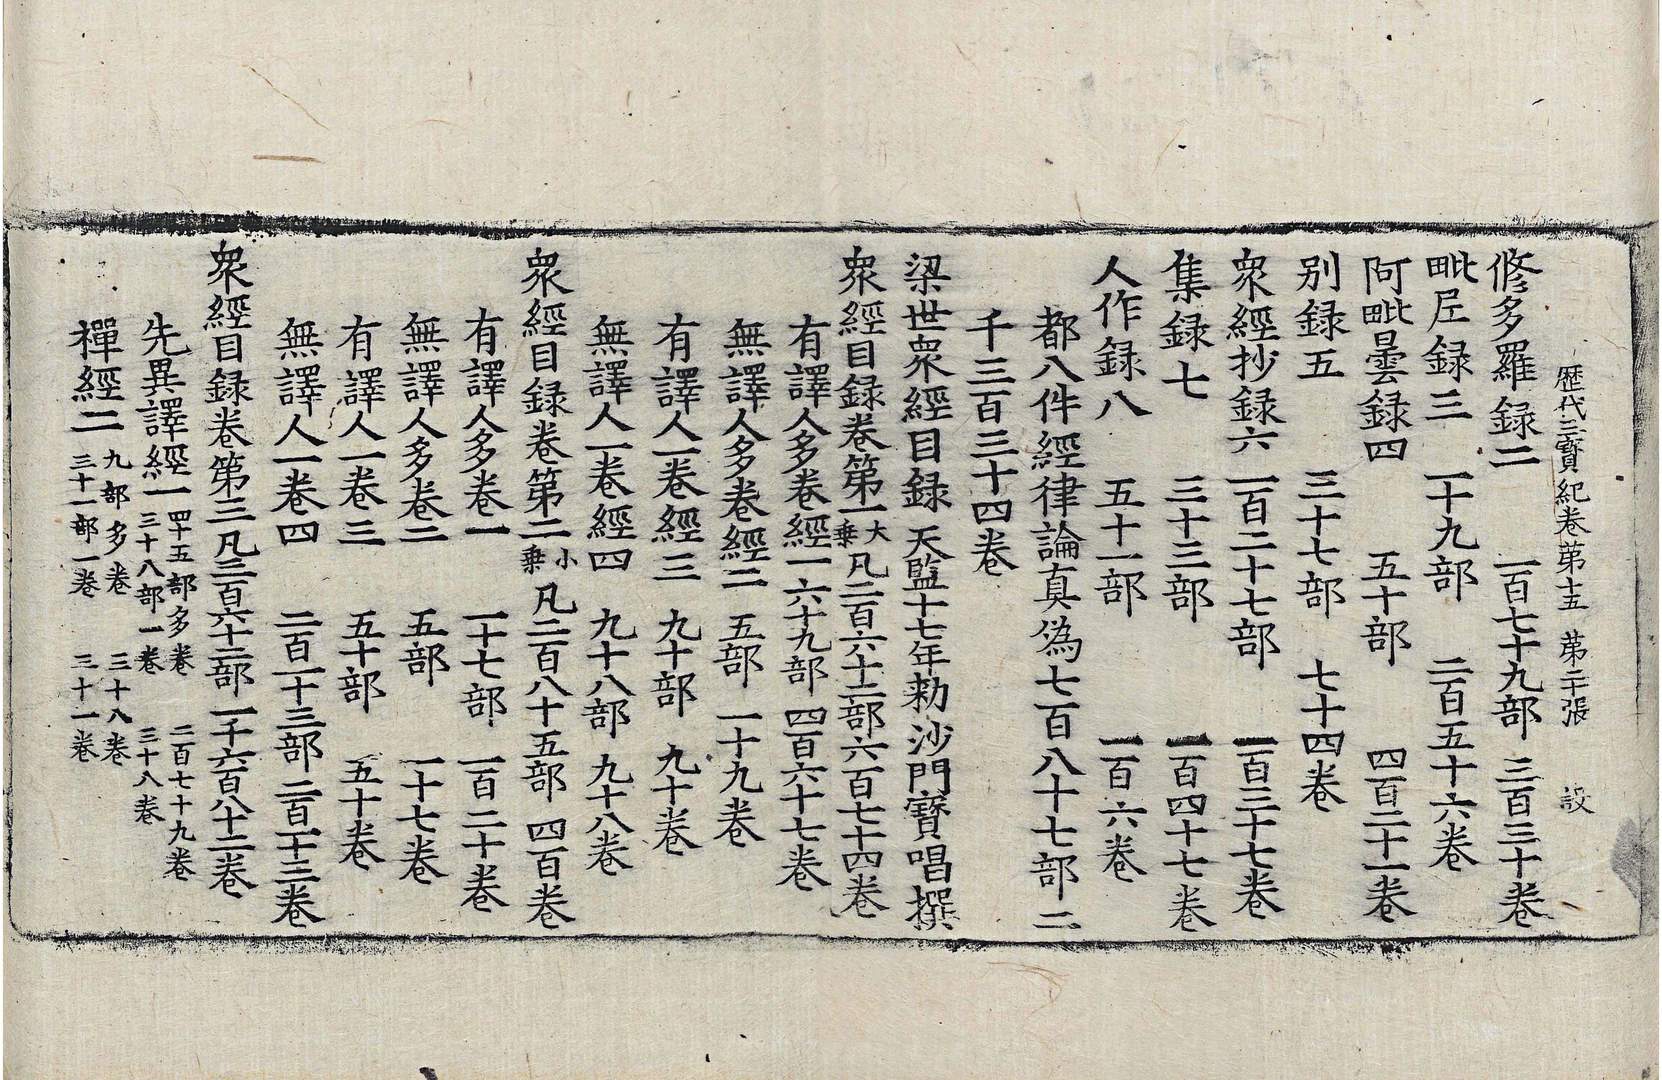 歷代三寶紀卷第十五 第二張 設
修多羅録二 一百七十九部 三百三十卷
毗尼録三 一十九部 二百五十六卷
阿毗曇録四 五十部 四百二十一卷
別録五 三十七部 七十四卷
衆經抄録六 一百二十七部 一百三十七卷
集録七 三十三部 一百四十七卷
人作録八 五十一部 一百六卷
都八件經律論真僞七百八十七部二
千三百三十四卷
梁世衆經目録 天監十七年勑沙門寶唱撰
衆經目録卷第一大乗凡二百六十二部六百七十四卷
有譯人多卷經一六十九部 四百六十七卷
無譯人多卷經二 五部 一十九卷
有譯人一卷經三 九十部 九十卷
無譯人一卷經四 九十八部 九十八卷
衆經目録卷第二小乗 凡二百八十五部 四百卷
有譯人多卷一 一十七部 一百二十卷
無譯人多卷二 五部 一十七卷
有譯人一卷三 五十部 五十卷
無譯人一卷四 二百一十三部 二百一十三卷
衆經目録卷第三凡三百六十二部一千六百八十二卷
先異譯經一四十五部多卷 二百七十九卷
三十八部一卷 三十八卷
禪經二九部多卷 三十八卷
三十一部一卷 三十一卷